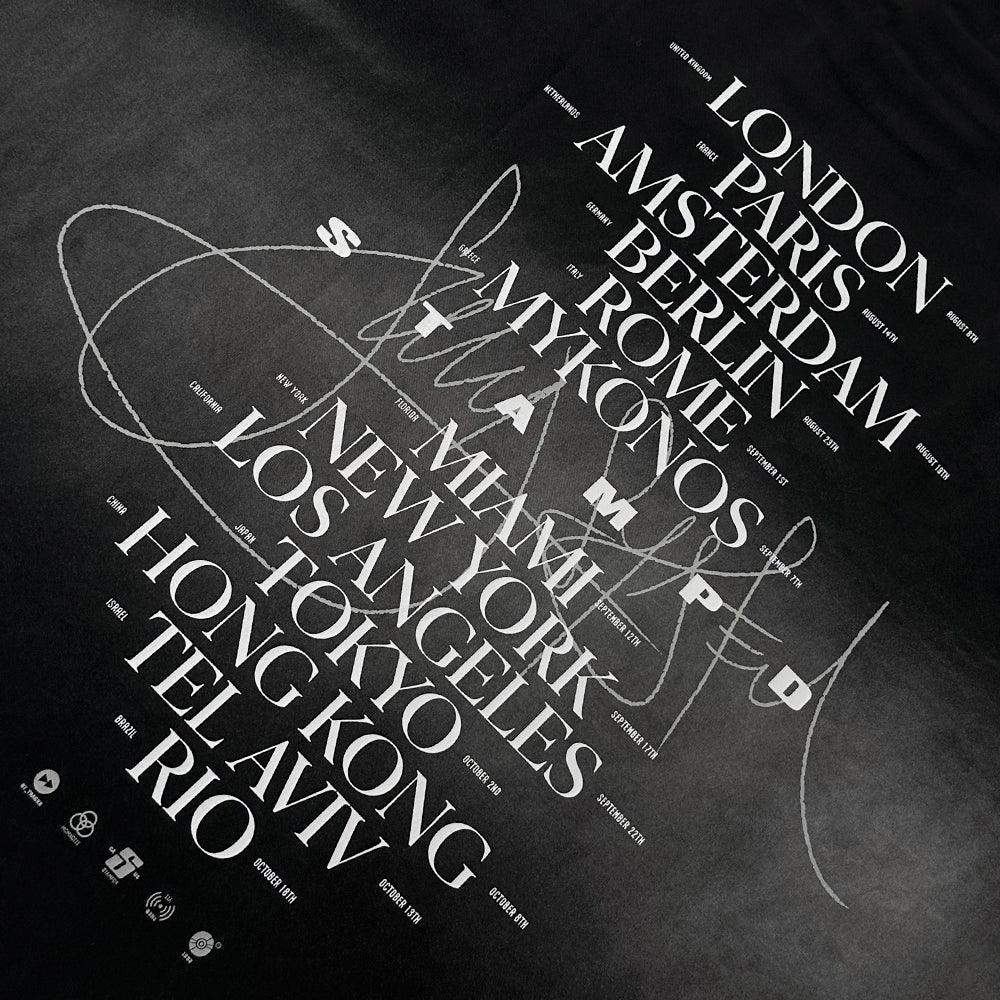 UNITED KINGDOM
LONDON
AUGUST 8TH
FRANCE
PARIS
AUGUST 14TH
NETHERLANDS
AMSTERDAM
AUGUST 18TH
GERMANY
BERLIN
AUGUST 23TH
ITALY
ROME
SEPTEMBER 1ST
GREECE
MYKONOS
SEPTEMBER 7TH
STAMPD
FLORIDA
MIAMI
SEPTEMBER 12TH
NEW YORK
NEW YORK
SEPTEMBER 17TH
CALIFORNIA
LOS ANGELES
SEPTEMBER 22TH
JAPAN
TOKYO
OCTOBER 2ND
CHINA
HONG KONG
OCTOBER 8TH
ISRAEL
TEL AVIV
OCTOBER 13TH
BRAZIL
RIO
OCTOBER 18TH